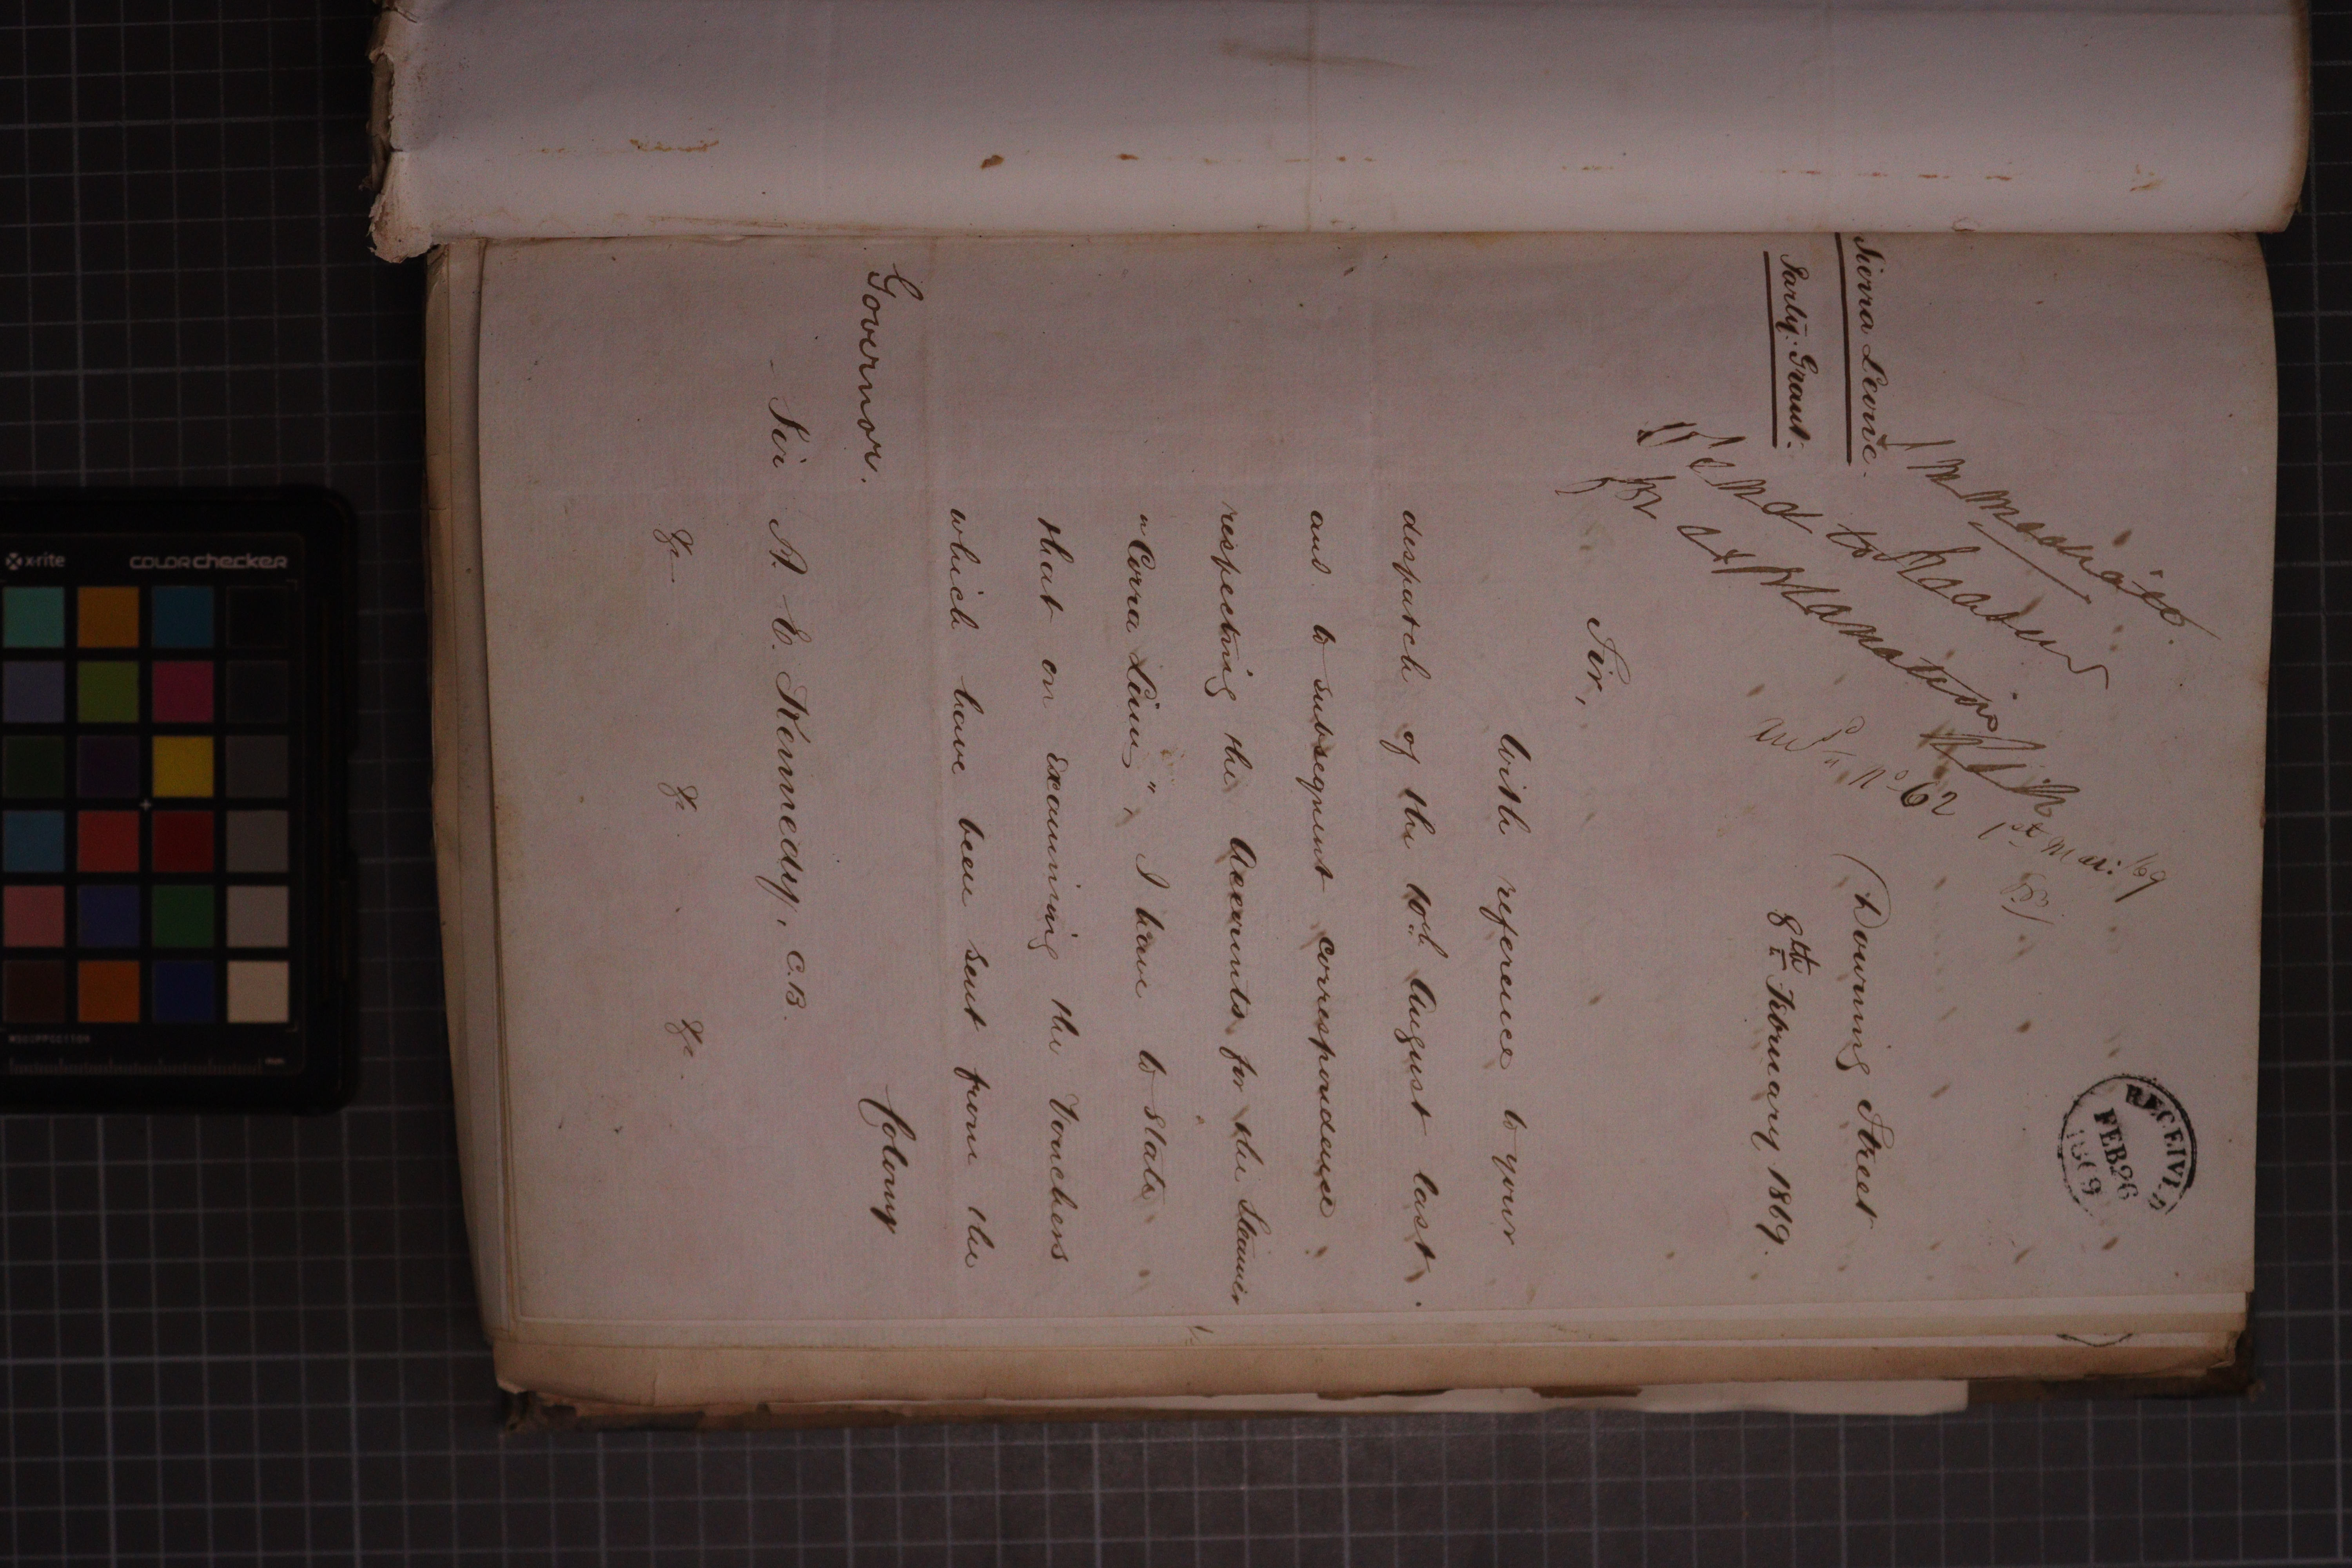 RECEIVED
FEB 26
1869
Immediate.
Sierra Leone.
Parly. Grant.
Send to
for explanation
1st Mar: /69
No 62
Downing Street
8th February 1869.
Sir,
With reference to your
despatch of the 10th August last.
and to subsequent correspondence
respecting the Accounts for the Steamer
"Corra Linn", I have to state
that on examining the Vouchers
which have been sent from the
Colony
Governor.
Sir A. E. Kennedy, C.B.
&c &c. &c.
x-rite
colorchecker